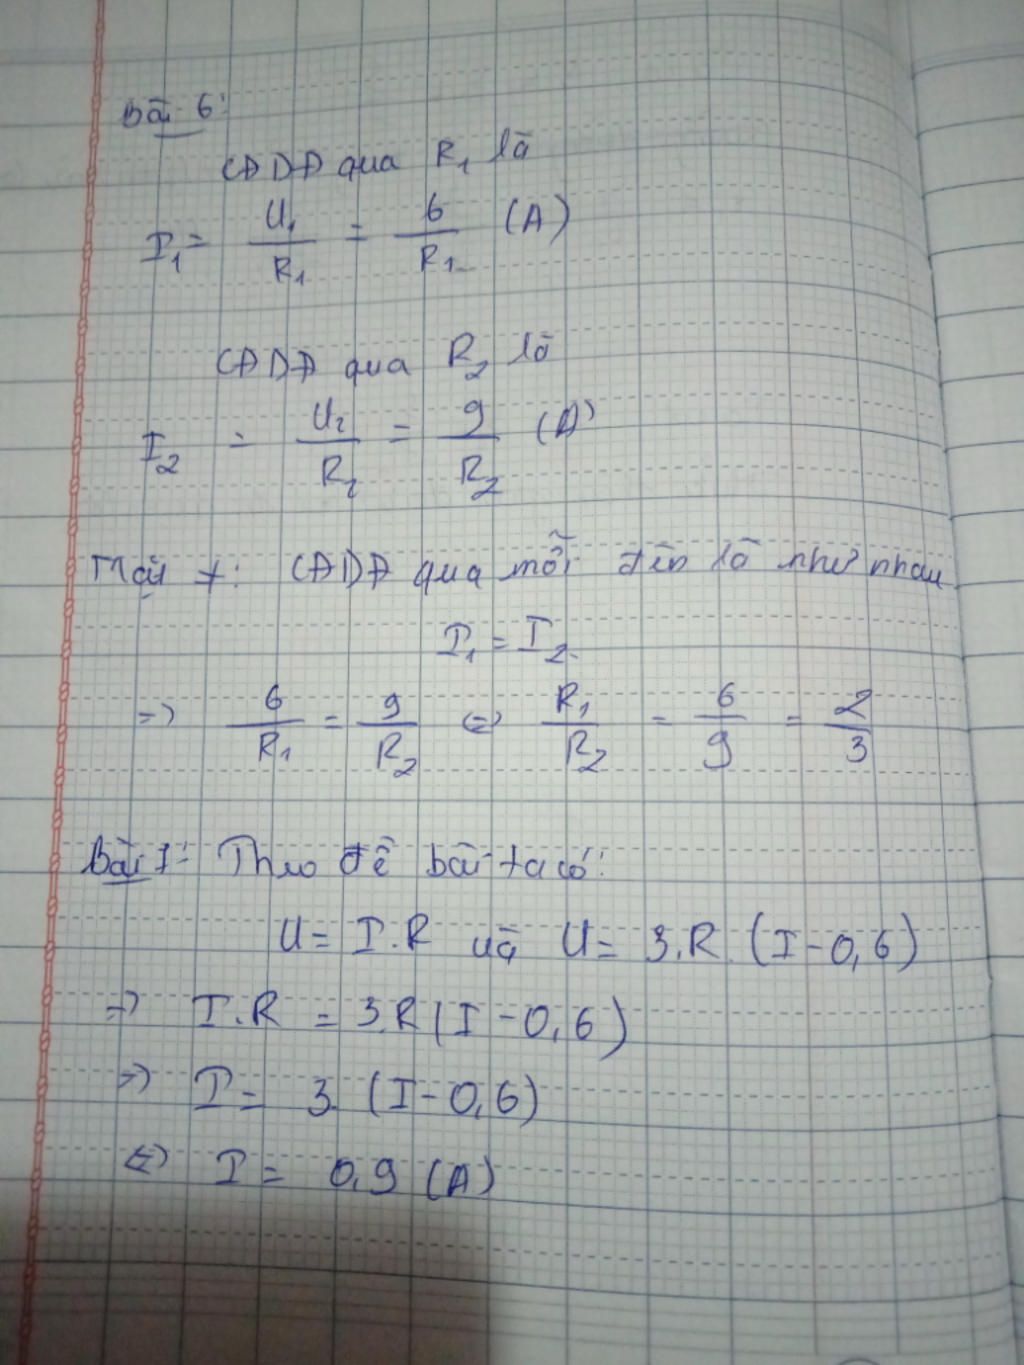 Bài 6:
CĐDĐ qua R₁ là
I₁ = U₁/R₁ = 6/R₁ (A)
CĐDĐ qua R₂ là
I₂ = U₂/R₂ = 9/R₂ (A)
Mặt ≠: CĐDĐ qua mỗi đèn là như nhau
I₁ = I₂
=> 6/R₁ = 9/R₂ <=> R₁/R₂ = 6/9 = 2/3
Bài 7: Theo đề bài ta có:
U = I.R và U = 3.R.(I-0,6)
=> I.R = 3.R(I-0,6)
=> I = 3.(I-0,6)
<=> I = 0,9 (A)